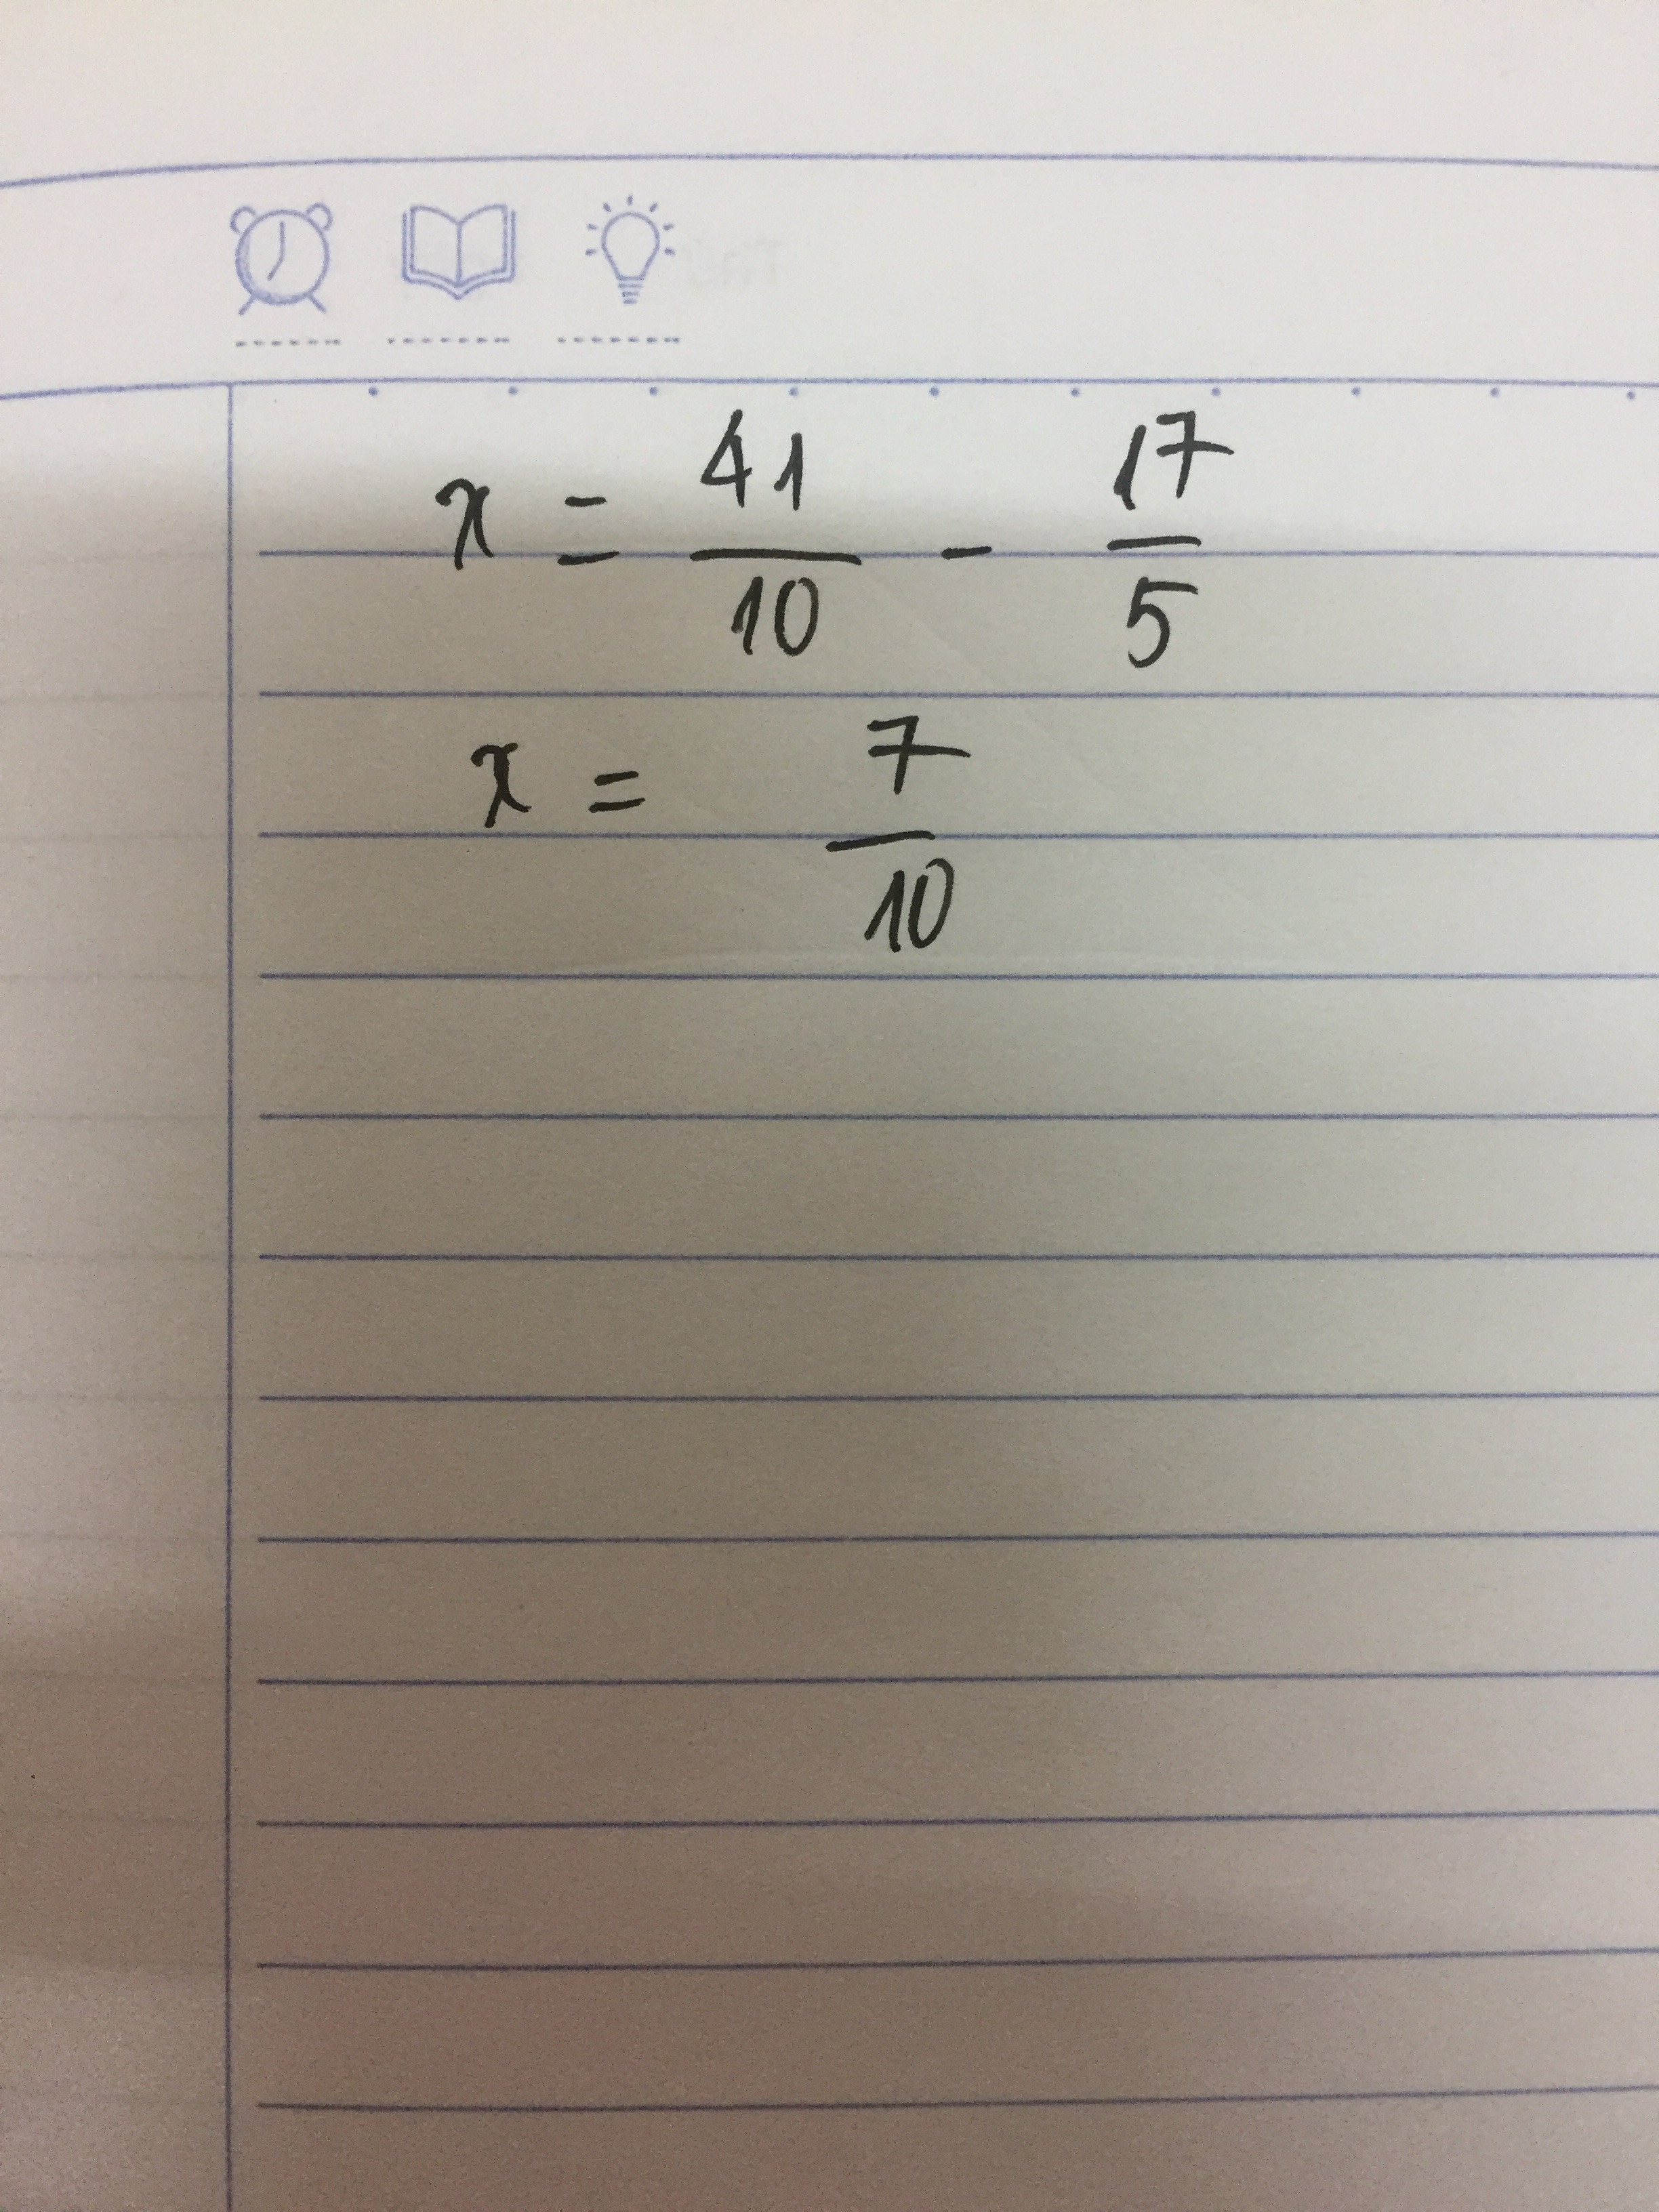 x = 41/10 - 17/5
x = 7/10